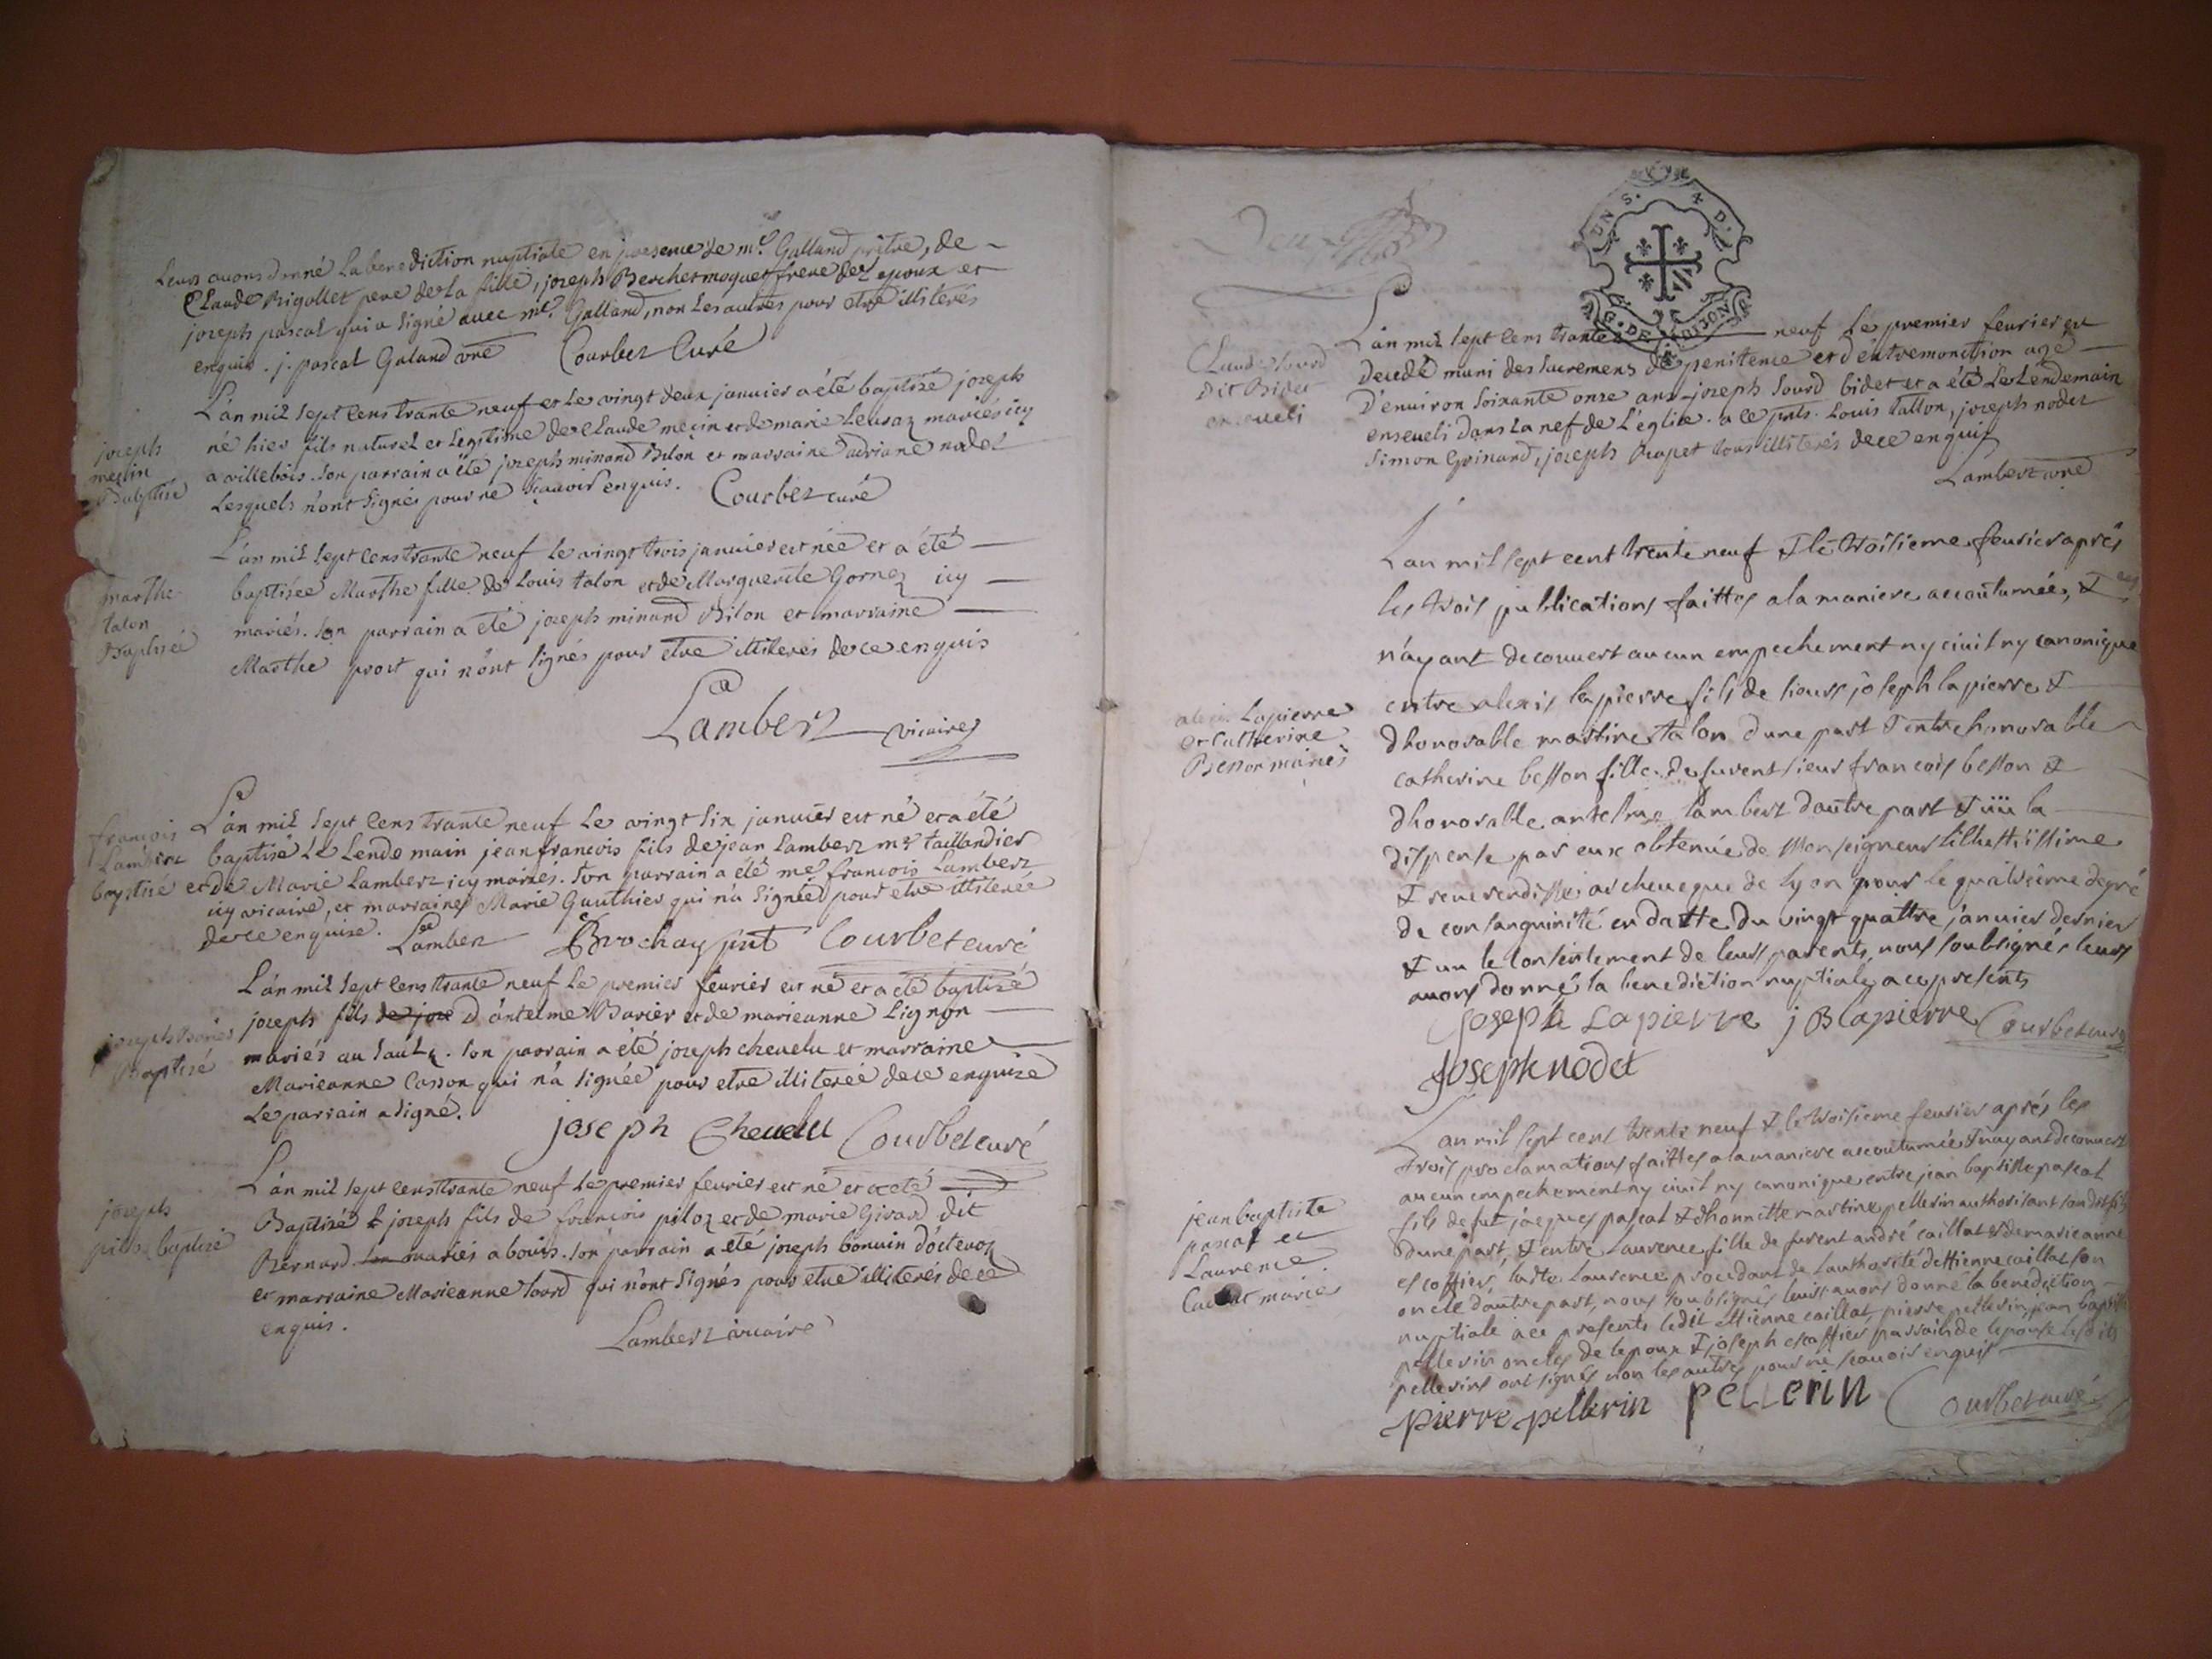 Leurs avons donné La benediction nuptiale en presence de mre. Galland prêtre, de
Claude Rigollet pere de La fille, joseph Berchet moquet frere de L'epoux et
joseph pascal qui a signé avec mre. Galland, non Les autres pour etre illiterés
enquis. j. pascal Galand Courbet Curé
L'an mil sept cens trante neuf et Les vingt deux janvier a été baptisé joseph
né hier fils naturel et Legitime de Claude meslin et de marie mariés icy
a villebois. son parrain a été joseph minand Bilon et marraine adriane nodet
Lesquels n'ont signés pour ne sçavoir enquis. Courbet curé
joseph
meslin
Baptisé
L'an mil sept cens trante neuf Le vingt trois janvier est née et a été
baptisée Marthe fille de Louis talon et de Marguerite Gornez icy
mariés. son parrain a été joseph minand Bilon et marraine
Marthe prost qui n'ont signés pour etre illiterés de ce enquis
marthe
talon
Baptisée
Lambert vicaire
L'an mil sept cens trante neuf Le vingt six janvier est né et a été
baptisé Le Lendemain jean francois fils de jean Lambert me taillandier
et de Marie Lambert icy mariés. son parrain a été mre francois Lambert
icy vicaire, et marraine Marie Gauthier qui n'a signée pour etre illiterée
de ce enquise. Lambert Brochay pnt Courbet curé
francois
Lambert
baptisé
L'an mil sept cens trante neuf Le premier fevrier est né et a été baptisé
joseph fils de jose D'antelme Barier et de marieanne Lignon
mariés au saúlt. son parrain a été joseph chevelu et marraine
Marieanne Casson qui n'a signée pour etre illiterée de ce enquise
Le parrain a signé.
joseph Chevelu Courbet curé
joseph
Baptisé
L'an mil sept cens trante neuf Le premier fevrier est né et a été
Baptisé joseph fils de francois piloz et de marie Girard dit
Bernard mariés a bouis. son parrain a été joseph bonvin d'octevoz
et marraine Marieanne sourd qui n'ont signés pour etre illiterés de ce
enquis.
Lambert vicaire
joseph
piloz baptisé
Deux
UN S. 4 D.
G. DE DIJON
L'an mil sept cens trante neuf Le premier fevrier est
decedé muni des sacremens de penitence et d'extremonction agé
D'environ soixante onze ans joseph sourd bidet et a été Le Lendemain
enseveli dans La nef de L'église. a ce pnts. Louis tallon, joseph nodet
simon Grinand, joseph Rapet tous illiterés de ce enquis
Lambert vre
Claude sourd
Dit Bidet
enseveli
L'an mil sept cent trente neuf & le troisieme fevrier après
les trois publications faittes a la maniere accoutumée, &
n'ayant decouvert aucun empechement ny civil ny canonique
entre alexis lapierre fils de sieur joseph lapierre &
dhonorable martine talon d'une part & entre honorable
catherine besson fille de furent sieur francois besson &
dhonorable antelme lambert d'autre part & vu la
dispense par eux obtenüe de Monseigneur l'illustrissime
& reverendissi. archeveque de Lyon pour le quatrieme degré
de consanguinité en datte du vingt quattre janvier dernier
& vu le consentement de leurs parents, nous soubsignés leurs
avons donné la benediction nuptiale a ce presents
joseph Lapierre j B lapierre Courbet curé
joseph nodet
alexis Lapierre
et Catherine
Besson mariés
L'an mil sept cent trente neuf & le troisieme fevrier après les
trois proclamations faittes a la maniere accoutumée & n'ayant decouvert
aucun empechement ny civil ny canonique entre jean baptiste pascal
fils de fut jacques pascal & d'honnette martine pellerin authorisant son dit fils
d'une part, & entre Laurence fille de furent andré caillat & de marieanne
escoffier, laditte Laurence procedant de l'authorité d'ettienne caillat son
oncle d'autre part, nous soubsignés leurs avons donné la benediction
nuptiale a ce presents ledit ettienne caillat, pierre pellerin, jean baptiste
pellerin oncles de l'epoux & joseph escoffier parrain de l'epouse lesdits
pellerins ont signés non les autres pour ne scavoir enquis
pierre pellerin PELLERIN Courbet curé
jean baptiste
pascal et
Laurence
Caillat mariés